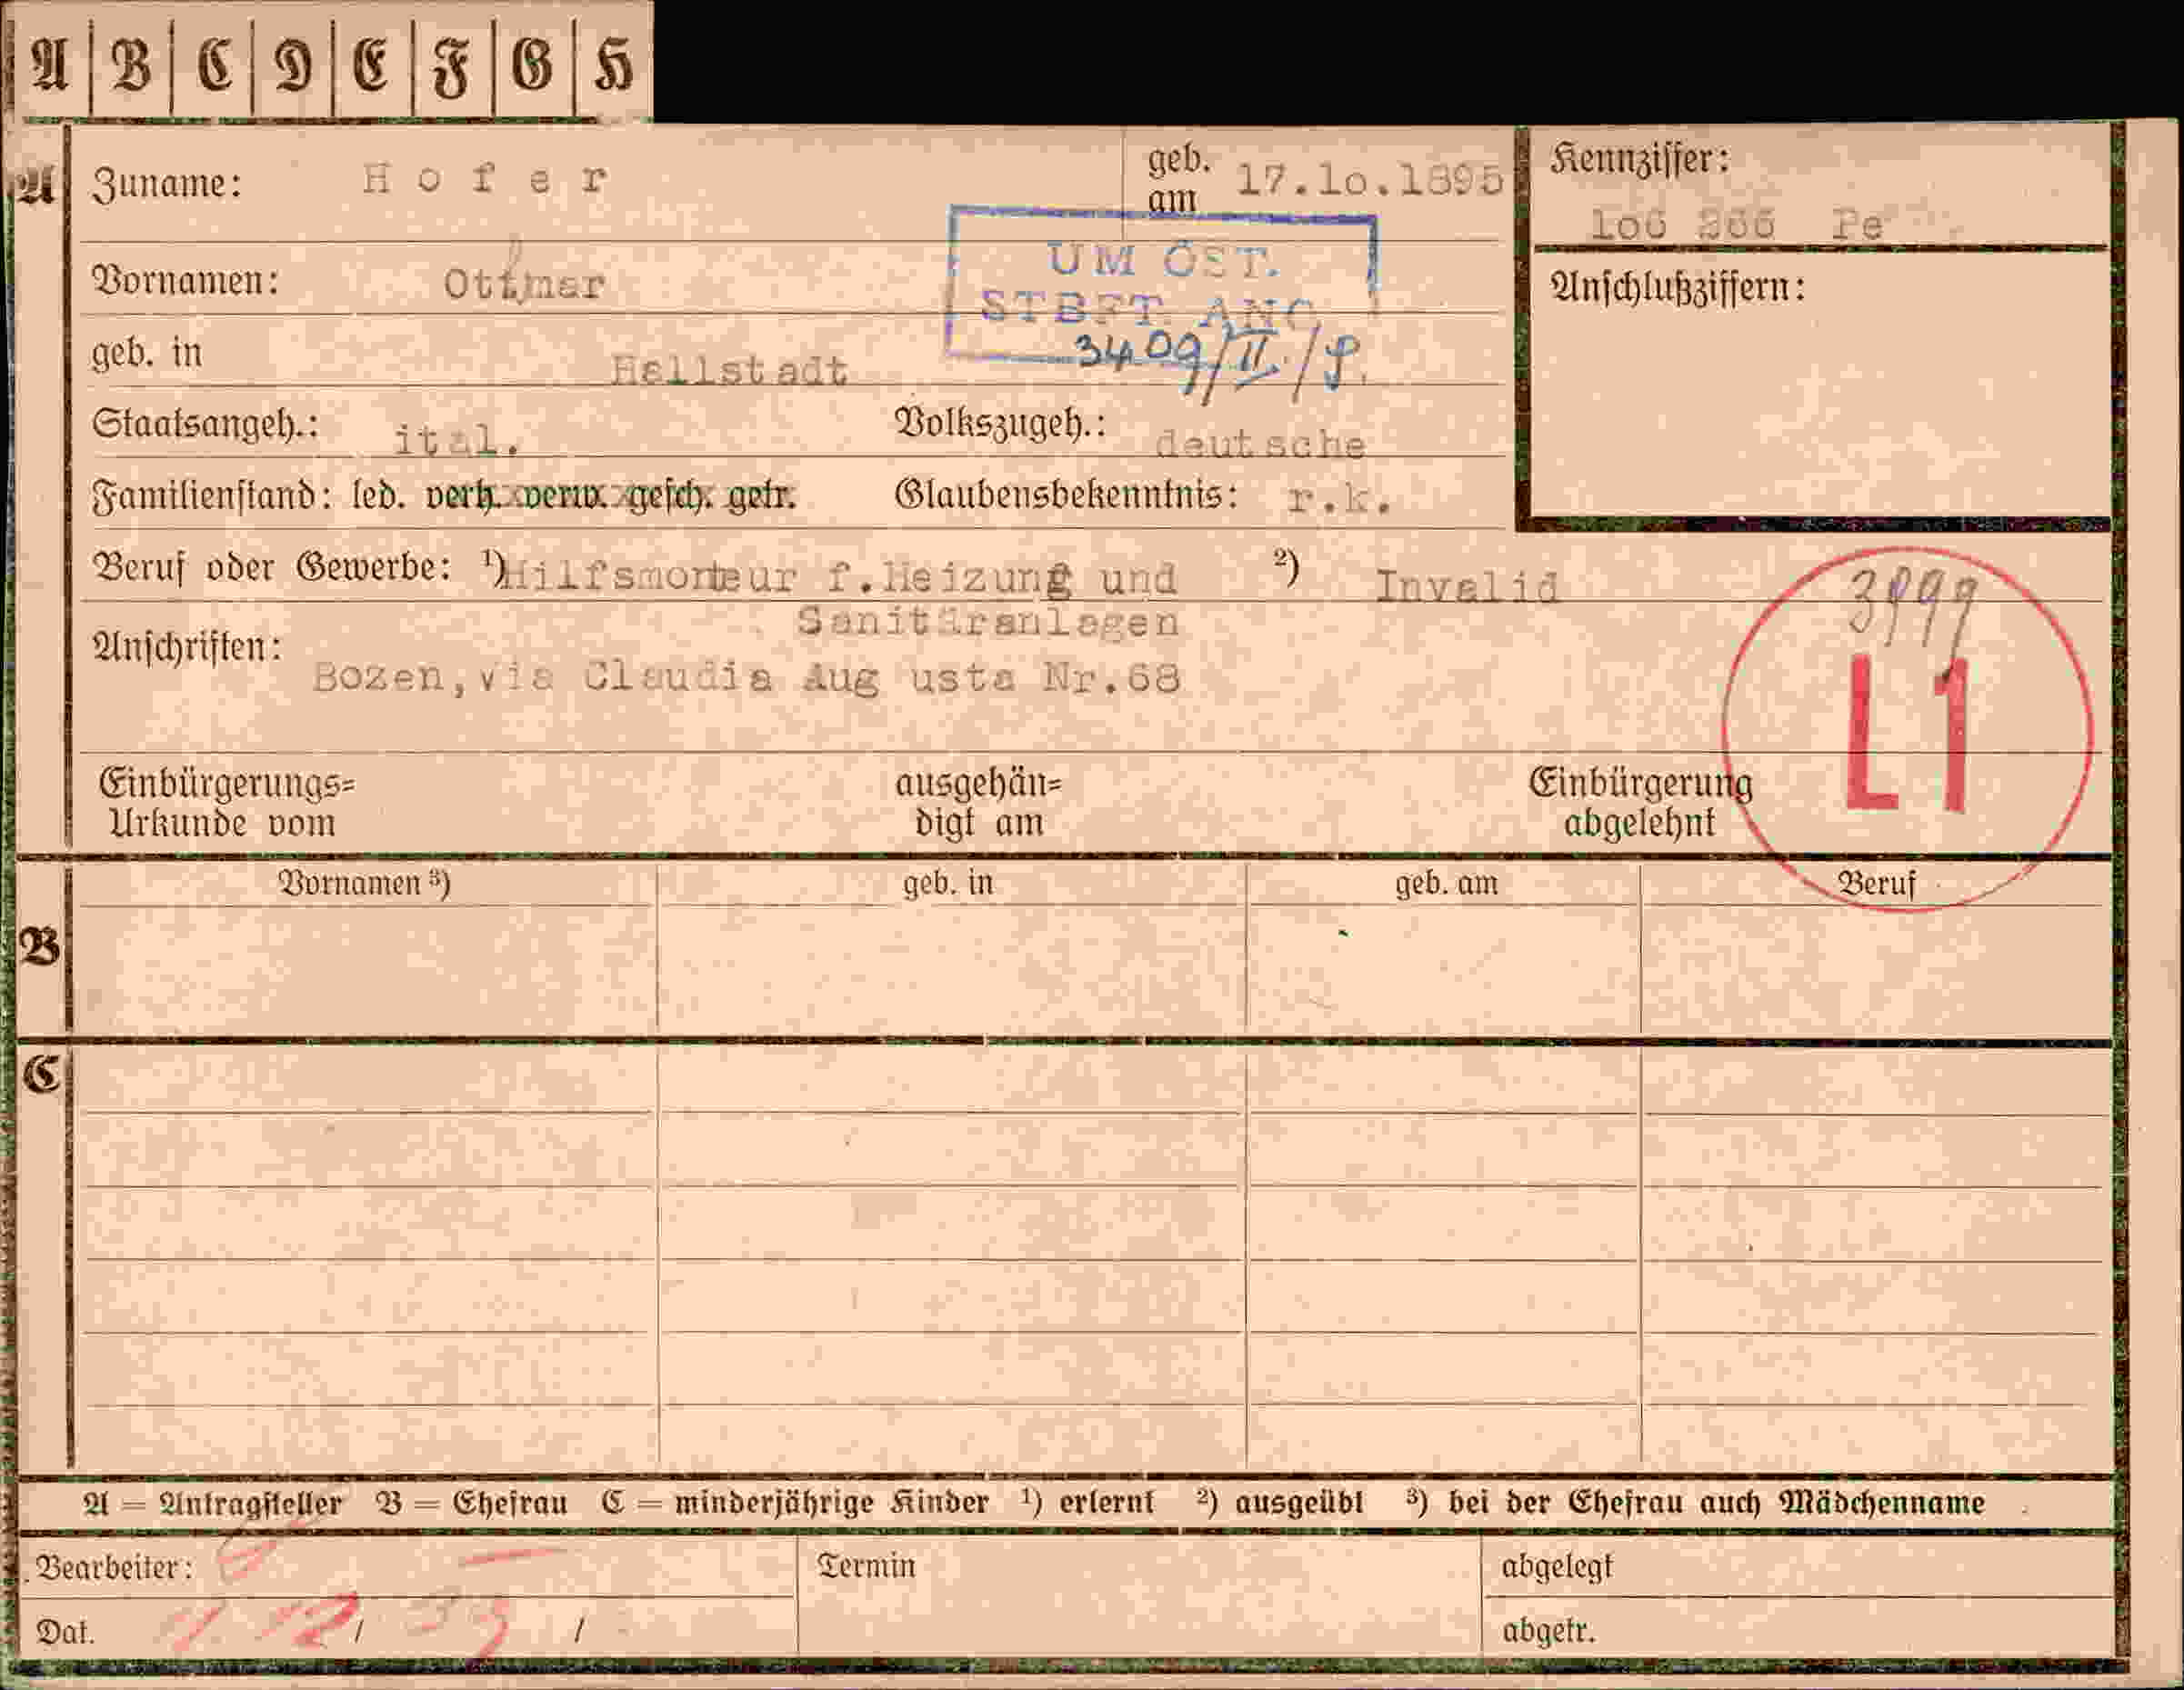 A B C D E F G H
A Zuname: Hofer geb. am 17.10.1895 Kennziffer:
106 366 Pe
Vornamen: Ottmar UM ÖST. Anschlußziffern:
geb. in Hallstadt 3409/II./P.
Staatsangeh.: ital. Volkszugeh.: deutsche
Familienstand: led. verh. verw. gesch. getr. Glaubensbekenntnis: r.k.
Beruf oder Gewerbe: ¹) Hilfsmonteur f.Heizung und ²) Invalid
Sanitäranlagen
Anschriften: Bozen,via Claudia Aug usta Nr.68
L1
Einbürgerungs= ausgehän= Einbürgerung
Urkunde vom digt am abgelehnt
Vornamen ³) geb. in geb. am Beruf
B
C
A = Antragsteller B = Ehefrau C = minderjährige Kinder ¹) erlernt ²) ausgeübt ³) bei der Ehefrau auch Mädchenname
Bearbeiter: Termin abgelegt
Dat. / / abgetr.